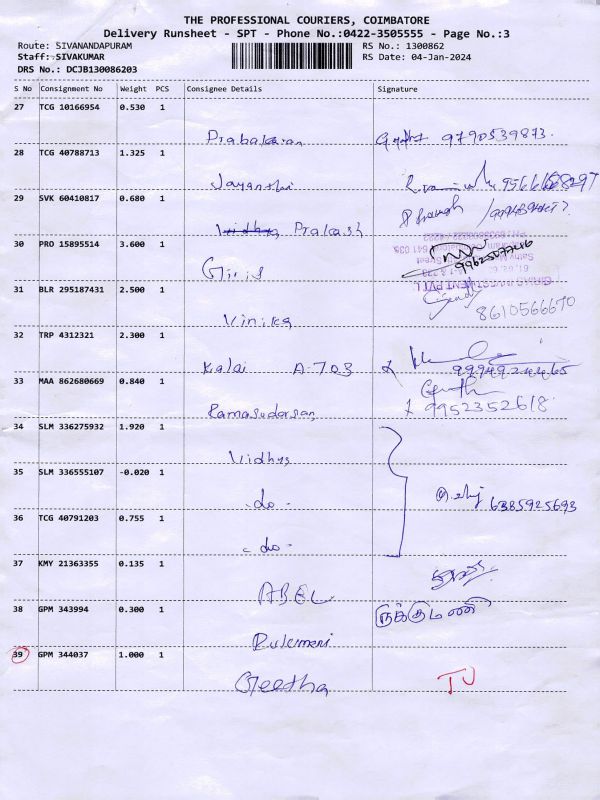 THE PROFESSIONAL COURIERS, COIMBATORE
Delivery Runsheet - SPT - Phone No.:0422-3505555 - Page No.:3
Route: SIVANANDAPURAM RS No.: 1300862
Staff: SIVAKUMAR RS Date: 04-Jan-2024
DRS No.: DCJB130086203
S No Consignment No Weight PCS Consignee Details Signature
27 TCG 10166954 0.530 1
Prabakaran 9790539873.
28 TCG 40788713 1.325 1
Jayanthi
29 SVK 60410817 0.680 1
Vidhya Prakash
30 PRO 15895514 3.600 1
Giris
31 BLR 295187431 2.500 1
Vinika 8610566670
32 TRP 4312321 2.300 1
Kalai A 703
33 MAA 862680669 0.840 1
Ramasudarsan 9952352618.
34 SLM 336275932 1.920 1
Vidhya
35 SLM 336555107 -0.020 1
- do - 6385925693
36 TCG 40791203 0.755 1
- do -
37 KMY 21363355 0.135 1
ABEL
38 GPM 343994 0.300 1 ருக்குமணி
Rukumani
39 GPM 344037 1.000 1
Geetha TU